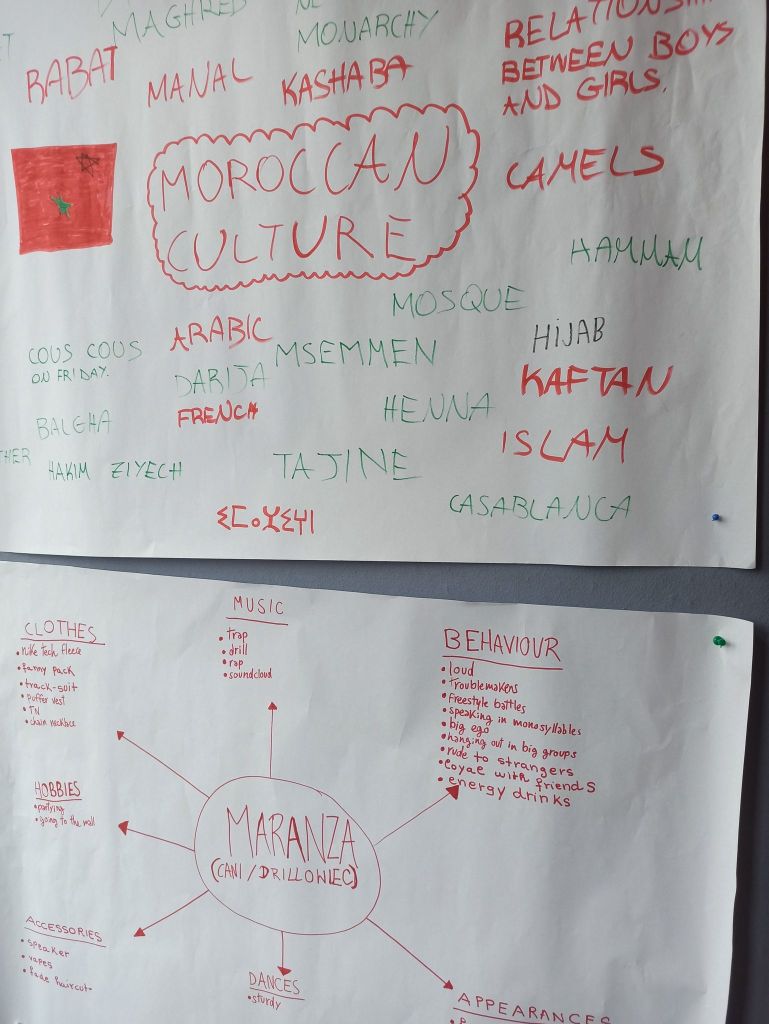 MAGHREB
MONARCHY
RELATIONSHI
BETWEEN BOYS
AND GIRLS.
RABAT
MANAL
KASHABA
MOROCCAN
CULTURE
CAMELS
HAMMAM
MOSQUE
HIJAB
ARABIC
MSEMMEN
COUS COUS
ON FRIDAY.
DARIJA
KAFTAN
FRENCH
HENNA
BALGHA
ISLAM
HAKIM ZIYECH
TAJINE
CASABLANCA
ⵉⵎⴰⵣⵉⵖⵏ
CLOTHES
• nike tech fleece
• fanny pack
• track-suit
• puffer vest
• TN
• chain necklace
MUSIC
• trap
• drill
• rap
• soundcloud
BEHAVIOUR
• loud
• Troublemakers
• Freestyle battles
• speaking in monosyllables
• big ego
• hanging out in big groups
• rude to strangers
• loyal with friends
• energy drinks
HOBBIES
• partying
• going to the mall
MARANZA
(CANI / DRILLOWIEC)
ACCESSORIES
• speaker
• vapes
• fade haircut
DANCES
• sturdy
APPEARANCES